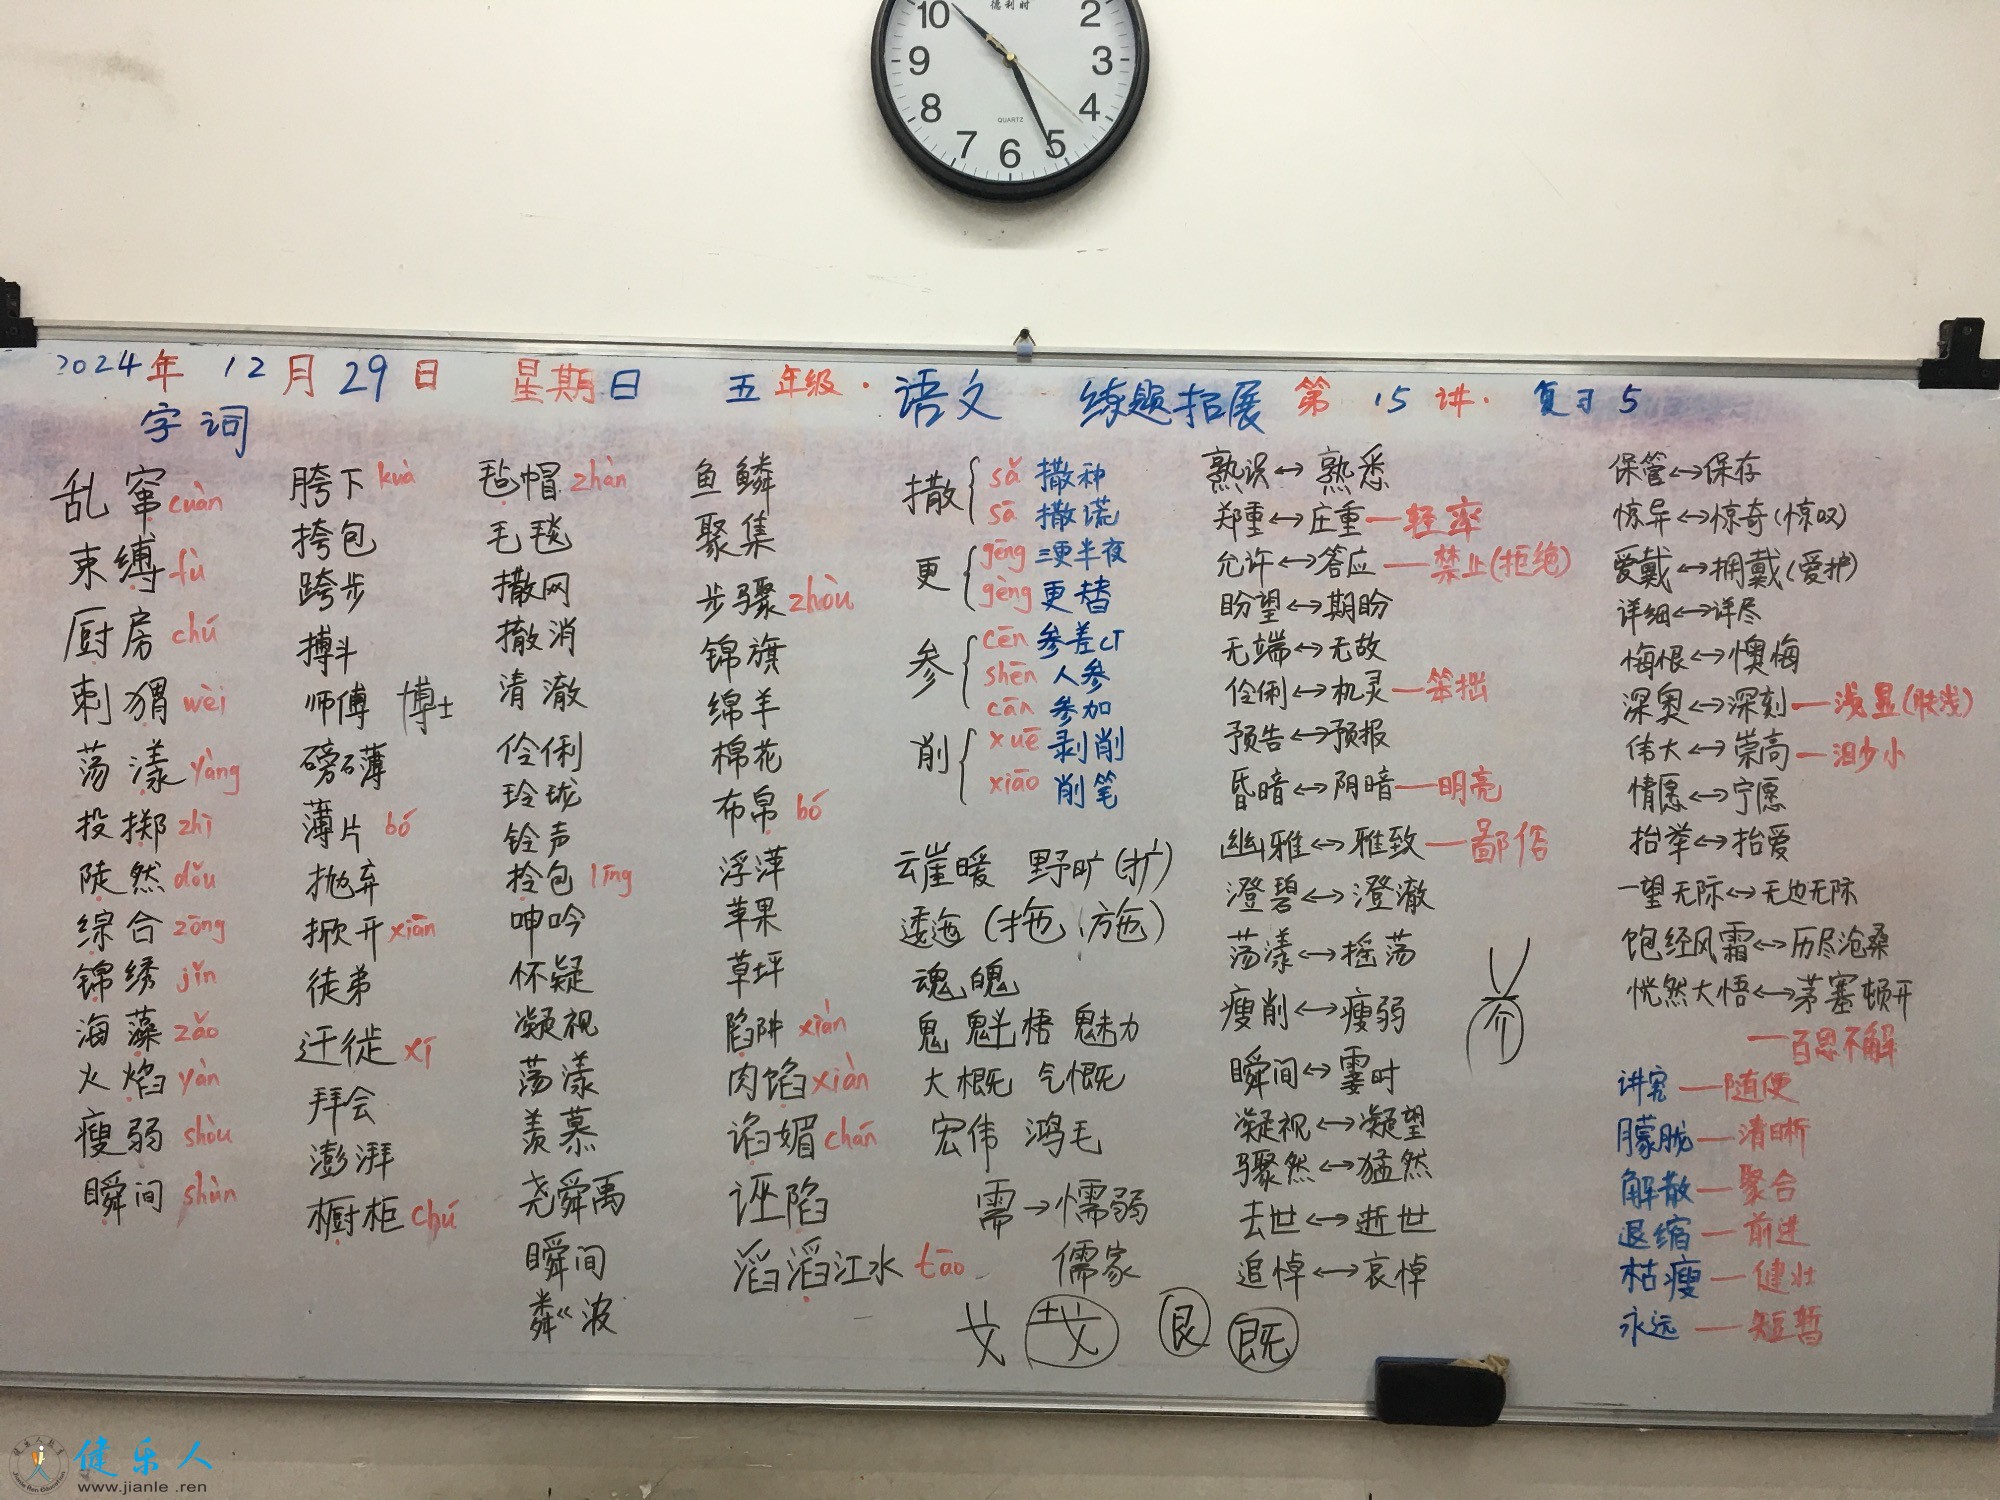 10 2
9 3
8 4
7 6 5
德利时
QUARTZ
2024年 12月29日 星期日 五年级·语文 练题拓展 第15讲·复习5
字词
乱窜 cuàn
束缚 fù
厨房 chú
刺猬 wèi
荡漾 yàng
投掷 zhì
陡然 dǒu
综合 zōng
锦绣 jǐn
海藻 zǎo
火焰 yàn
瘦弱 shòu
瞬间 shùn
胯下 kuà
挎包
跨步
搏斗
师傅 博士
磅礴
薄片 bó
抛弃
掀开 xiān
徒弟
迁徙 xǐ
拜会
澎湃
橱柜 chú
毡帽 zhān
毛毯
撒网
撤消
清澈
伶俐
玲珑
铃声
拎包 līng
呻吟
怀疑
凝视
荡漾
羡慕
尧舜禹
瞬间
粼波
鱼鳞
聚集
步骤 zhòu
锦旗
绵羊
棉花
布帛 bó
浮萍
苹果
草坪
陷阱 xiàn
肉馅 xiàn
谄媚 chǎn
诬陷
滔滔江水 tāo
撒 sǎ 撒种
sā 撒谎
更 gēng 三更半夜
gèng 更替
参 cēn 参差
shēn 人参
cān 参加
削 xuē 剥削
xiāo 削笔
野旷(扩)
(拖、施)
魂魄
鬼 魁梧 魅力
大概 气慨
宏伟 鸿毛
需→懦弱
儒家
艮 既
熟识↔熟悉
郑重↔庄重—轻率
允许↔答应—禁止(拒绝)
盼望↔期盼
无端↔无故
伶俐↔机灵—笨拙
预告↔预报
昏暗↔阴暗—明亮
幽雅↔雅致—鄙俗
澄碧↔澄澈
荡漾↔摇荡
瘦削↔瘦弱
瞬间↔霎时
凝视↔凝望
骤然↔猛然
去世↔逝世
追悼↔哀悼
保管↔保存
惊异↔惊奇(惊叹)
爱戴↔拥戴(爱护)
详细↔详尽
悔恨↔懊悔
深奥↔深刻—浅显(肤浅)
伟大↔崇高—渺小
情愿↔宁愿
抬举↔抬爱
一望无际↔无边无际
饱经风霜↔历尽沧桑
恍然大悟↔茅塞顿开
—百思不解
讲究—随便
朦胧—清晰
解散—聚合
退缩—前进
枯瘦—健壮
永远—短暂
健乐人
www.jianle.ren